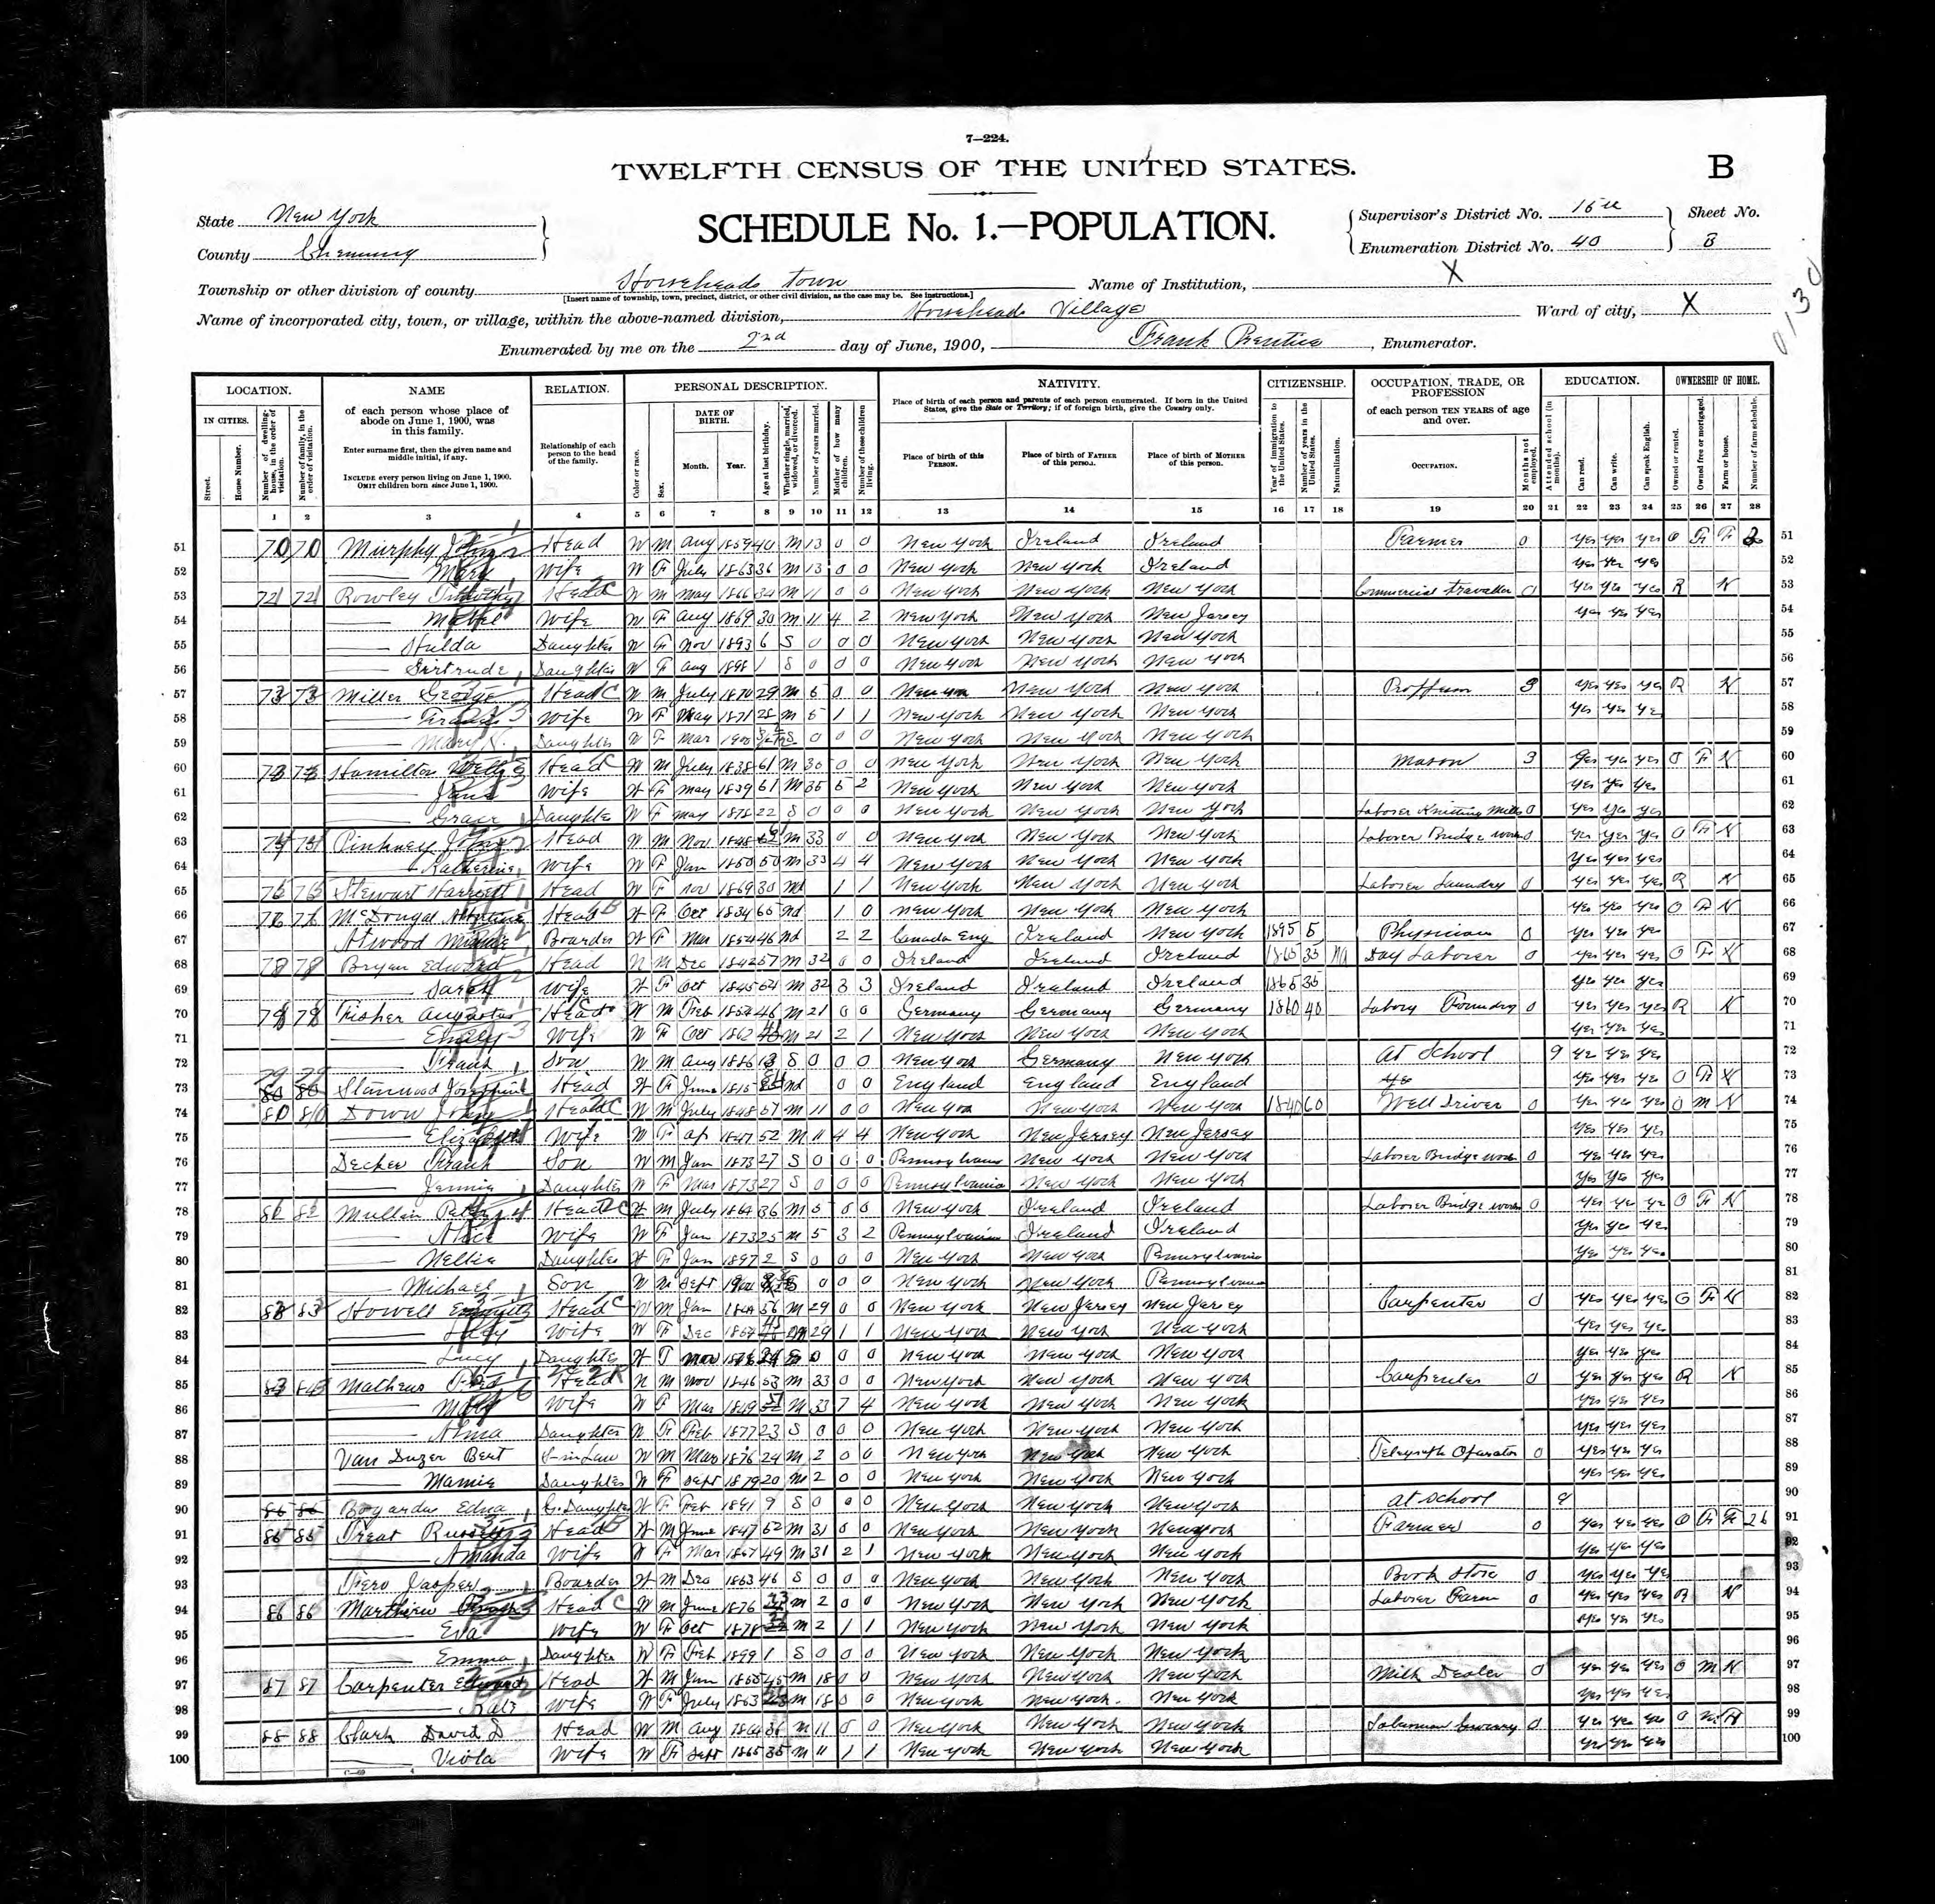 7—224.
TWELFTH CENSUS OF THE UNITED STATES.
B
State New York
SCHEDULE No. 1.—POPULATION.
Supervisor's District No. 15
Sheet No.
County Chemung
Enumeration District No. 40
8
Township or other division of county Horseheads Town
Name of Institution, X
[Insert name of township, town, precinct, district, or other civil division, as the case may be. See instructions.]
Name of incorporated city, town, or village, within the above-named division, Horseheads Village
Ward of city, X
0130
Enumerated by me on the 2nd day of June, 1900, Frank Prentice, Enumerator.
LOCATION. NAME RELATION. PERSONAL DESCRIPTION. NATIVITY. CITIZENSHIP. OCCUPATION, TRADE, OR PROFESSION EDUCATION. OWNERSHIP OF HOME.
IN CITIES.
Street.
House Number.
Number of dwelling-house, in the order of visitation.
Number of family, in the order of visitation.
of each person whose place of abode on June 1, 1900, was in this family.
Enter surname first, then the given name and middle initial, if any.
INCLUDE every person living on June 1, 1900.
OMIT children born since June 1, 1900.
Relationship of each person to the head of the family.
Color or race.
Sex.
DATE OF BIRTH.
Month. Year.
Age at last birthday.
Whether single, married, widowed, or divorced.
Number of years married.
Mother of how many children.
Number of these children living.
Place of birth of each person and parents of each person enumerated. If born in the United States, give the State or Territory; if of foreign birth, give the Country only.
Place of birth of this PERSON.
Place of birth of FATHER of this person.
Place of birth of MOTHER of this person.
Year of immigration to the United States.
Number of years in the United States.
Naturalization.
of each person TEN YEARS of age and over.
OCCUPATION.
Months not employed.
Attended school (in months).
Can read.
Can write.
Can speak English.
Owned or rented.
Owned free or mortgaged.
Farm or house.
Number of farm schedule.
1 2 3 4 5 6 7 8 9 10 11 12 13 14 15 16 17 18 19 20 21 22 23 24 25 26 27 28
51 70 70 Murphy Head W M Aug 1859 40 M 13 0 0 New York Ireland Ireland Farmer 0 yes yes yes O F F 2 51
52 Mary Wife W F July 1863 36 M 13 0 0 New York New York Ireland yes yes yes 52
53 Rowley Timothy Head W M May 1866 34 M 11 0 0 New York New York New York Commercial traveller 0 yes yes yes R N 53
54 Wife W F Aug 1869 30 M 11 4 2 New York New York New Jersey yes yes yes 54
55 Hulda Daughter W F Nov 1893 6 S 0 0 0 New York New York New York 55
56 Girtrude Daughter W F Aug 1898 1 S 0 0 0 New York New York New York 56
57 Miller George Head W M July 1870 29 M 5 0 0 New York New York New York 3 yes yes yes R N 57
58 Wife W F May 1871 28 M 5 1 1 New York New York New York yes yes yes 58
59 Mary N. Daughter W F Mar 1900 S 0 0 0 New York New York New York 59
60 Hamilton Head W M July 1838 61 M 35 0 0 New York New York New York Mason 3 yes yes yes O F N 60
61 Jane Wife W F May 1839 61 M 35 5 2 New York New York New York yes yes yes 61
62 Grace Daughter W F May 1878 22 S 0 0 0 New York New York New York Laborer Knitting Mills 0 yes yes yes 62
63 Pinkney Head W M Nov 1848 M 33 0 0 New York New York New York Laborer Bridge works 0 yes yes yes O F N 63
64 Katherine Wife W F Jan 1850 50 M 33 4 4 New York New York New York yes yes yes 64
65 Stewart Harriett Head W F Nov 1869 30 Wd 1 1 New York New York New York Laborer Laundry 0 yes yes yes R N 65
66 McDougal Head W F Oct 1834 65 Wd 1 0 New York New York New York yes yes yes O F N 66
67 Atwood Minnie Boarder W F Mar 1854 46 Wd 2 2 Canada Eng Ireland New York 1895 5 Physician 0 yes yes yes 67
68 Bryan Edward Head W M Dec 1842 57 M 32 0 0 Ireland Ireland Ireland 1865 35 Na Day Laborer 0 yes yes yes O F N 68
69 Sarah Wife W F Oct 1845 54 M 32 3 3 Ireland Ireland Ireland 1865 35 yes yes yes 69
70 Fisher Augustus Head W M Feb 1854 46 M 21 0 0 Germany Germany Germany 1860 40 Foundry 0 yes yes yes R N 70
71 Emily Wife W F Oct 1862 M 21 2 1 New York New York New York yes yes yes 71
72 Frank Son W M Aug 1886 13 S 0 0 0 New York Germany New York At School 9 yes yes yes 72
73 Stanwood Josephine Head W F June 1815 Wd 0 0 England England England yes yes yes O F N 73
74 Down John Head W M July 1848 51 M 11 0 0 New York New York New York 1840 60 Well Driver 0 yes yes yes O M N 74
75 Elizabeth Wife W F Ap 1847 52 M 11 4 4 New York New Jersey New Jersey yes yes yes 75
76 Decker Frank Son W M Jan 1873 27 S 0 0 0 Pennsylvania New York New York Laborer Bridge works 0 yes yes yes 76
77 Jennie Daughter W F Mar 1873 27 S 0 0 0 Pennsylvania New York New York yes yes yes 77
78 Mullin Head W M July 1864 36 M 5 0 0 New York Ireland Ireland Laborer Bridge works 0 yes yes yes O F N 78
79 Alice Wife W F Jan 1873 25 M 5 3 2 Pennsylvania Ireland Ireland yes yes yes 79
80 Nellie Daughter W F Jan 1897 2 S 0 0 0 New York New York Pennsylvania yes yes yes 80
81 Michael Son W M Sept S 0 0 0 New York New York Pennsylvania 81
82 Howell Head W M Jan 1844 56 M 29 0 0 New York New Jersey New Jersey Carpenter 0 yes yes yes O F N 82
83 Wife W F Dec M 29 1 1 New York New York New York yes yes yes 83
84 Lucy Daughter W F Nov S 0 0 0 New York New York New York yes yes yes 84
85 Mathews Head W M Nov 1846 53 M 33 0 0 New York New York New York Carpenter 0 yes yes yes R N 85
86 Wife W F Mar 1849 M 33 7 4 New York New York New York yes yes yes 86
87 Alma Daughter W F Feb 1877 23 S 0 0 0 New York New York New York yes yes yes 87
88 Van Duzer Bert S-in Law W M Mar 1876 24 M 2 0 0 New York New York New York Telegraph Operator 0 yes yes yes 88
89 Mamie Daughter W F Sept 1879 20 M 2 0 0 New York New York New York yes yes yes 89
90 Bogardus Edna G. Daughter W F Feb 1891 9 S 0 0 0 New York New York New York At school 9 90
91 85 85 Treat Russell Head W M June 1847 52 M 31 0 0 New York New York New York Farmer 0 yes yes yes O F F 26 91
92 Amanda Wife W F Mar 49 M 31 2 1 New York New York New York yes yes yes 92
93 Fero Jasper Boarder W M Dec 1853 46 S 0 0 0 New York New York New York Book Store 0 yes yes yes 93
94 86 86 Head W M June 1876 M 2 0 0 New York New York New York Laborer Farm 0 yes yes yes R N 94
95 Eva Wife W F Oct 1878 M 2 1 1 New York New York New York yes yes yes 95
96 Emma Daughter W F Feb 1899 1 S 0 0 0 New York New York New York 96
97 87 87 Carpenter Edward Head W M Jan 1855 45 M 18 0 0 New York New York New York Milk Dealer 0 yes yes yes O M N 97
98 Kate Wife W F July 1863 M 18 0 0 New York New York New York yes yes yes 98
99 88 88 Clark David D Head W M Aug 1864 36 M 11 0 0 New York New York New York 0 yes yes yes O M H 99
100 Viola Wife W F Sept 1865 35 M 11 1 1 New York New York New York yes yes yes 100